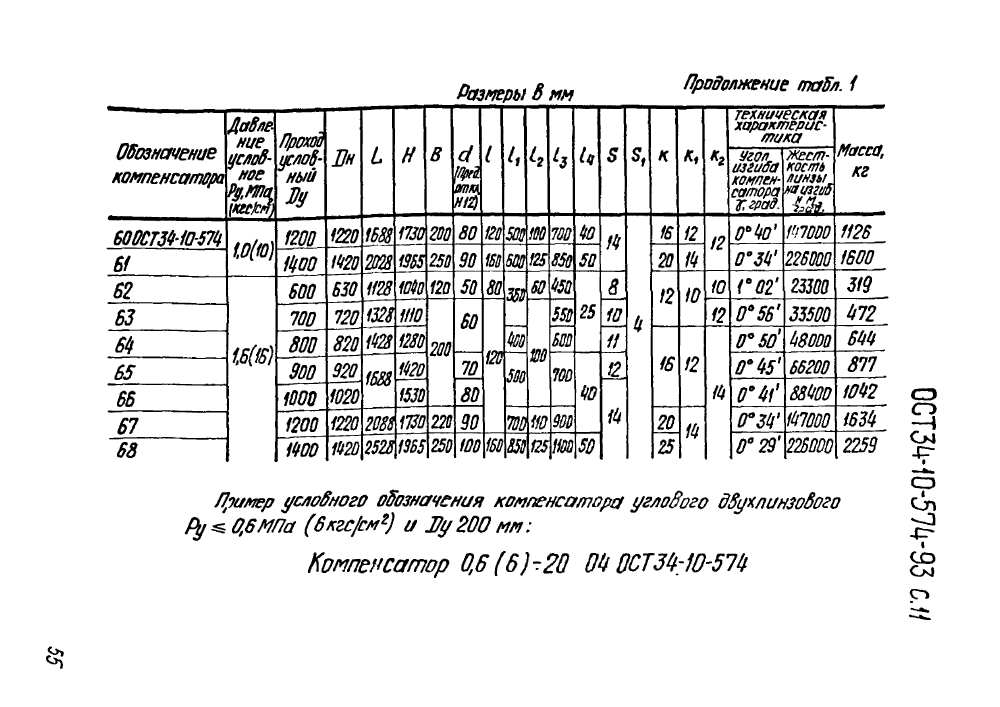 Размеры в мм
Продолжение табл. 1
Обозначение компенсатора | Давление условное Ру, МПа (кгс/см²) | Проход условный Ду | Дн | L | H | B | d (Пред. откл. H12) | l | l₁ | l₂ | l₃ | l₄ | S | S₁ | K | K₁ | K₂ | Техническая характеристика | Масса, кг
Угол изгиба компенсатора γ, град. | Жесткость линзы на изгиб
60 ОСТ34-10-574 | 1,0(10) | 1200 | 1220 | 1688 | 1730 | 200 | 80 | 120 | 500 | 100 | 700 | 40 | 14 | 4 | 16 | 12 | 12 | 0°40' | 147000 | 1126
61 | 1400 | 1420 | 2028 | 1965 | 250 | 90 | 160 | 600 | 125 | 850 | 50 | 20 | 14 | 0°34' | 226000 | 1600
62 | 1,6(16) | 600 | 630 | 1128 | 1040 | 120 | 50 | 80 | 350 | 60 | 450 | 25 | 8 | 12 | 10 | 10 | 1°02' | 23300 | 319
63 | 700 | 720 | 1328 | 1110 | 200 | 60 | 120 | 100 | 550 | 10 | 12 | 0°56' | 33500 | 472
64 | 800 | 820 | 1428 | 1280 | 400 | 600 | 11 | 16 | 12 | 14 | 0°50' | 48000 | 644
65 | 900 | 920 | 1688 | 1420 | 70 | 500 | 700 | 40 | 12 | 0°45' | 66200 | 877
66 | 1000 | 1020 | 1530 | 80 | 14 | 0°41' | 88400 | 1042
67 | 1200 | 1220 | 2088 | 1730 | 220 | 90 | 700 | 110 | 900 | 20 | 14 | 0°34' | 147000 | 1634
68 | 1400 | 1420 | 2528 | 1965 | 250 | 100 | 160 | 850 | 125 | 1100 | 50 | 25 | 0°29' | 226000 | 2259
Пример условного обозначения компенсатора углового двухлинзового
Ру ≤ 0,6 МПа (6 кгс/см²) и Ду 200 мм:
Компенсатор 0,6 (6)-20 04 ОСТ34-10-574
ОСТ34-10-574-93 с.11
55